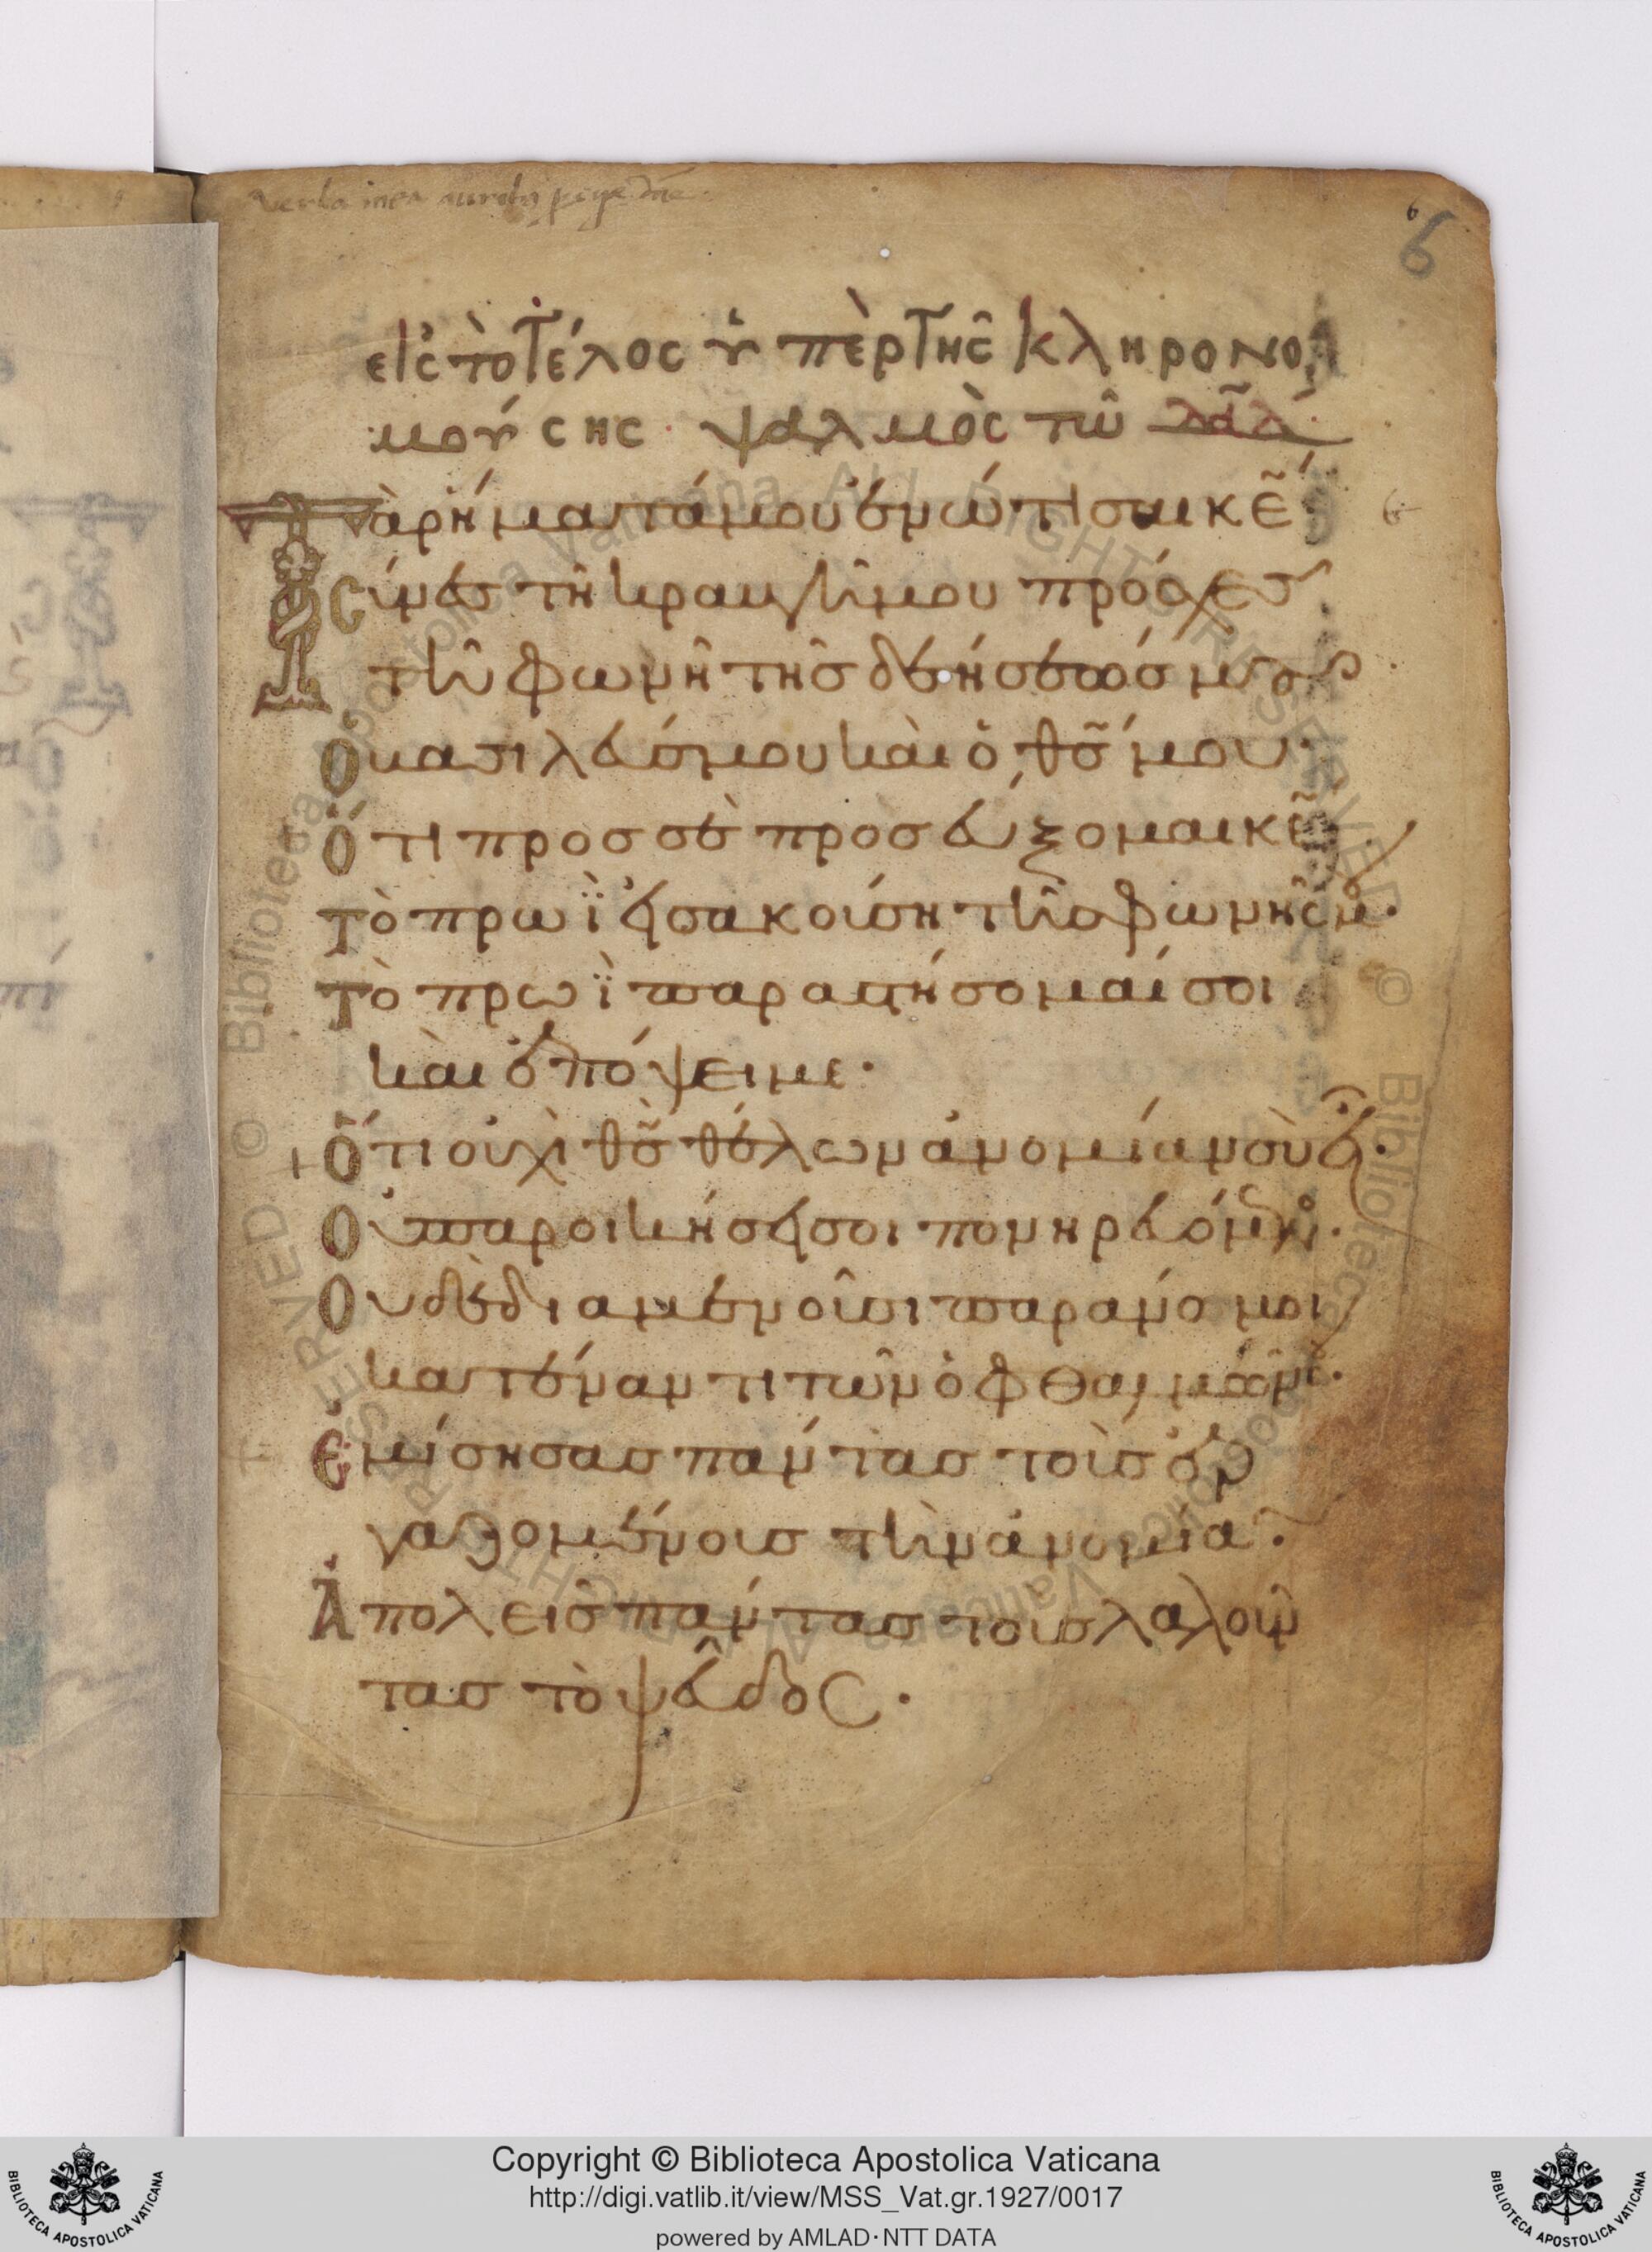 verba mea auribus percipe dñe
6
6
εἰς τὸ τέλος ὑπὲρ τῆς κληρονο
μούσης· ψαλμὸς τῶ δᾱδ·
Τὰ ῥήματά μου ἐνώτισαι κε̄·
σύνες τῆ κραυγῆ μου πρόσχες
τῆ φωνῆ τῆς δεήσεώς μου·
Ὁ βασιλεύς μου καὶ ὁ θς̄ μου·
Ὅτι προς σὲ προσεύξομαι κε̄
τὸ πρωῒ εἰσακούση τῆς φωνῆς μου·
τὸ πρωῒ παραστήσομαί σοι
καὶ ἐπόψει με·
Ὅτι οὐχὶ θς̄ θέλων ἀνομίαν σὺ εἶ·
Οὐ παροικήσει σοι πονηρευόμενος·
Οὐδὲ διαμενοῦσι παράνομοι
κατέναντι τῶν ὀφθαλμῶν σου·
Ἐμίσησας πάντας τοὺς ἐρ
γαζομένους τὴν ἀνομίαν·
Ἀπολεῖς πάντας τοὺς λαλοῦν
τας τὸ ψεῦδος·
Copyright © Biblioteca Apostolica Vaticana
http://digi.vatlib.it/view/MSS_Vat.gr.1927/0017
powered by AMLAD·NTT DATA
BIBLIOTECA APOSTOLICA VATICANA
BIBLIOTECA APOSTOLICA VATICANA